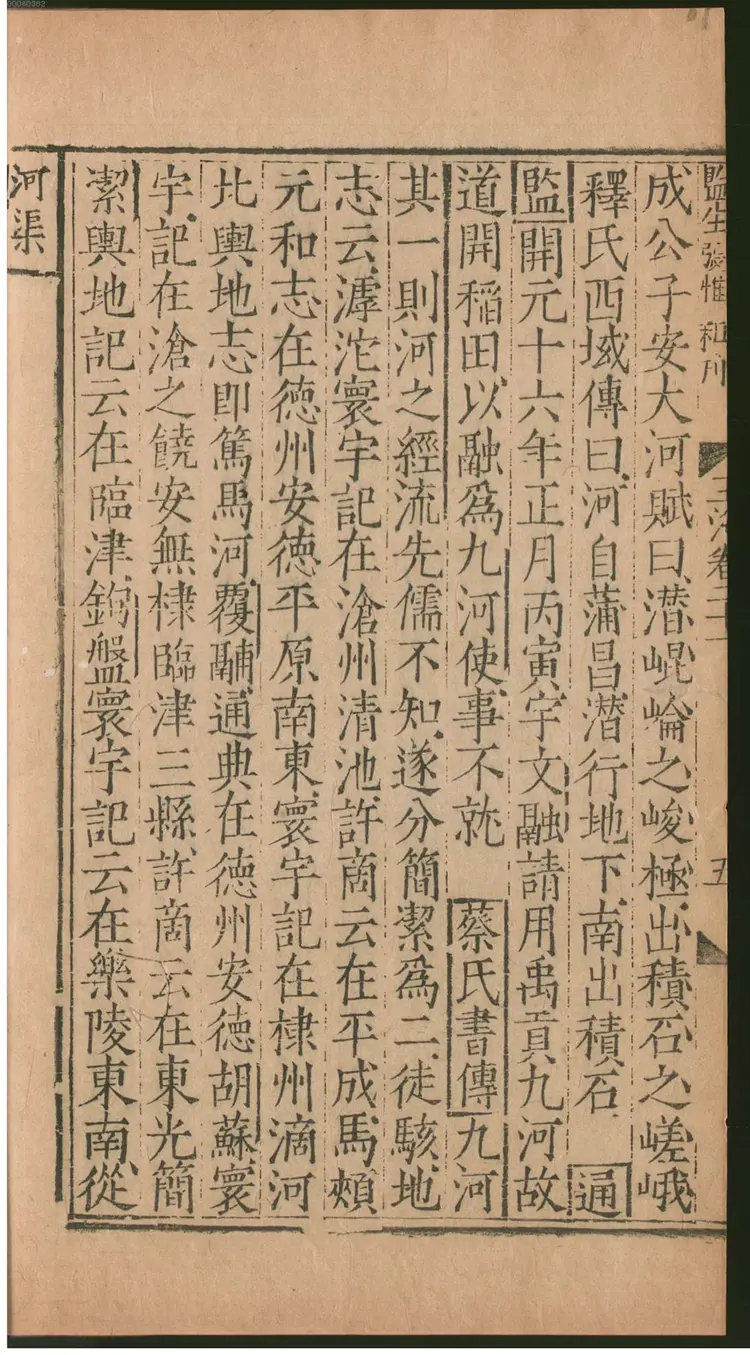 00080382
監生 張惟和刊
玉海卷二十一
五
成公子安大河賦曰潛崐崘之峻極出積石之嵯峨
釋氏西域傳曰河自蒲昌潛行地下南出積石 通
監開元十六年正月丙寅宇文融請用禹貢九河故
道開稻田以融為九河使事不就 蔡氏書傳九河
其一則河之經流先儒不知遂分簡潔為二徒駭地
志云滹沱寰宇記在滄州清池許商云在平成馬頰
元和志在德州安德平原南東寰宇記在棣州滴河
北輿地志即篤馬河覆鬴通典在德州安德胡蘇寰
宇記在滄之饒安無棣臨津三縣許商云在東光簡
潔輿地記云在臨津鉤盤寰宇記云在樂陵東南從
河渠